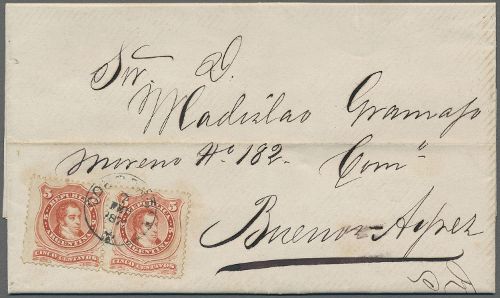 Sr. D.
Wladislao Gramajo
Moreno No 182. Comº
Buenos Ayres
5 REPUBLICA 5
ARGENTINA
CINCO CENTAVOS
5 REPUBLICA 5
ARGENTINA
CINCO CENTAVOS